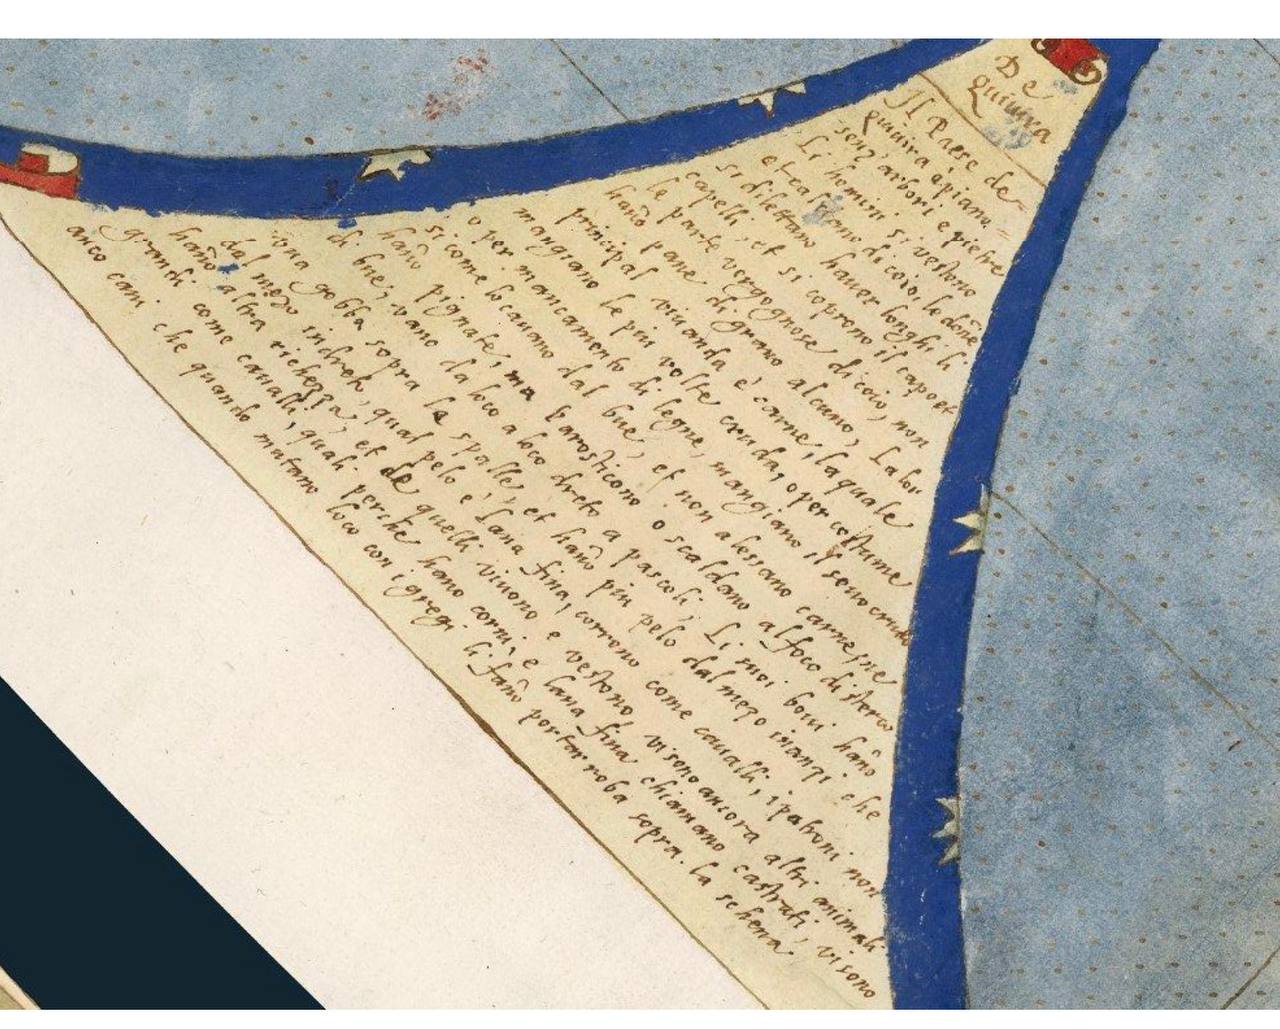 De
quiuira
Il Paese de
quiuira è piano
senz'arbori e pietre
Li homini si vestono
et calzano di coio, le doñe
si dilettano hauer longhi li
capelli, et si coprono il capo et
le parte vergognose di coio, non
haño pane di grano alcuno, La lor
principal viuanda è carne, la quale
mangiano le piu volte cruda, o per costume
o per mancamento di legne, mangiano il seuo crudo
si come lo cauano dal bue, et non alessano carne, ne
haño pignate, ma l'arosticono o scaldano al foco di sterco
di bue, vano da loco a loco dreto a pascoli, Li suoi boui haño
vna gobba sopra le spalle, et haño piu pelo dal mezo inanzi che
dal mezo indreto, qual pelo e lana fina, corrono come caualli, i patroni non
haño altra richezza, et de quelli viuono e vestono, vi sono ancora altri animali
grandi come caualli, quali perche hano corni, e lana fina chiamano castrati, vi sono
anco cani che quando mutano loco con i gregi li fano portar roba sopra la schena